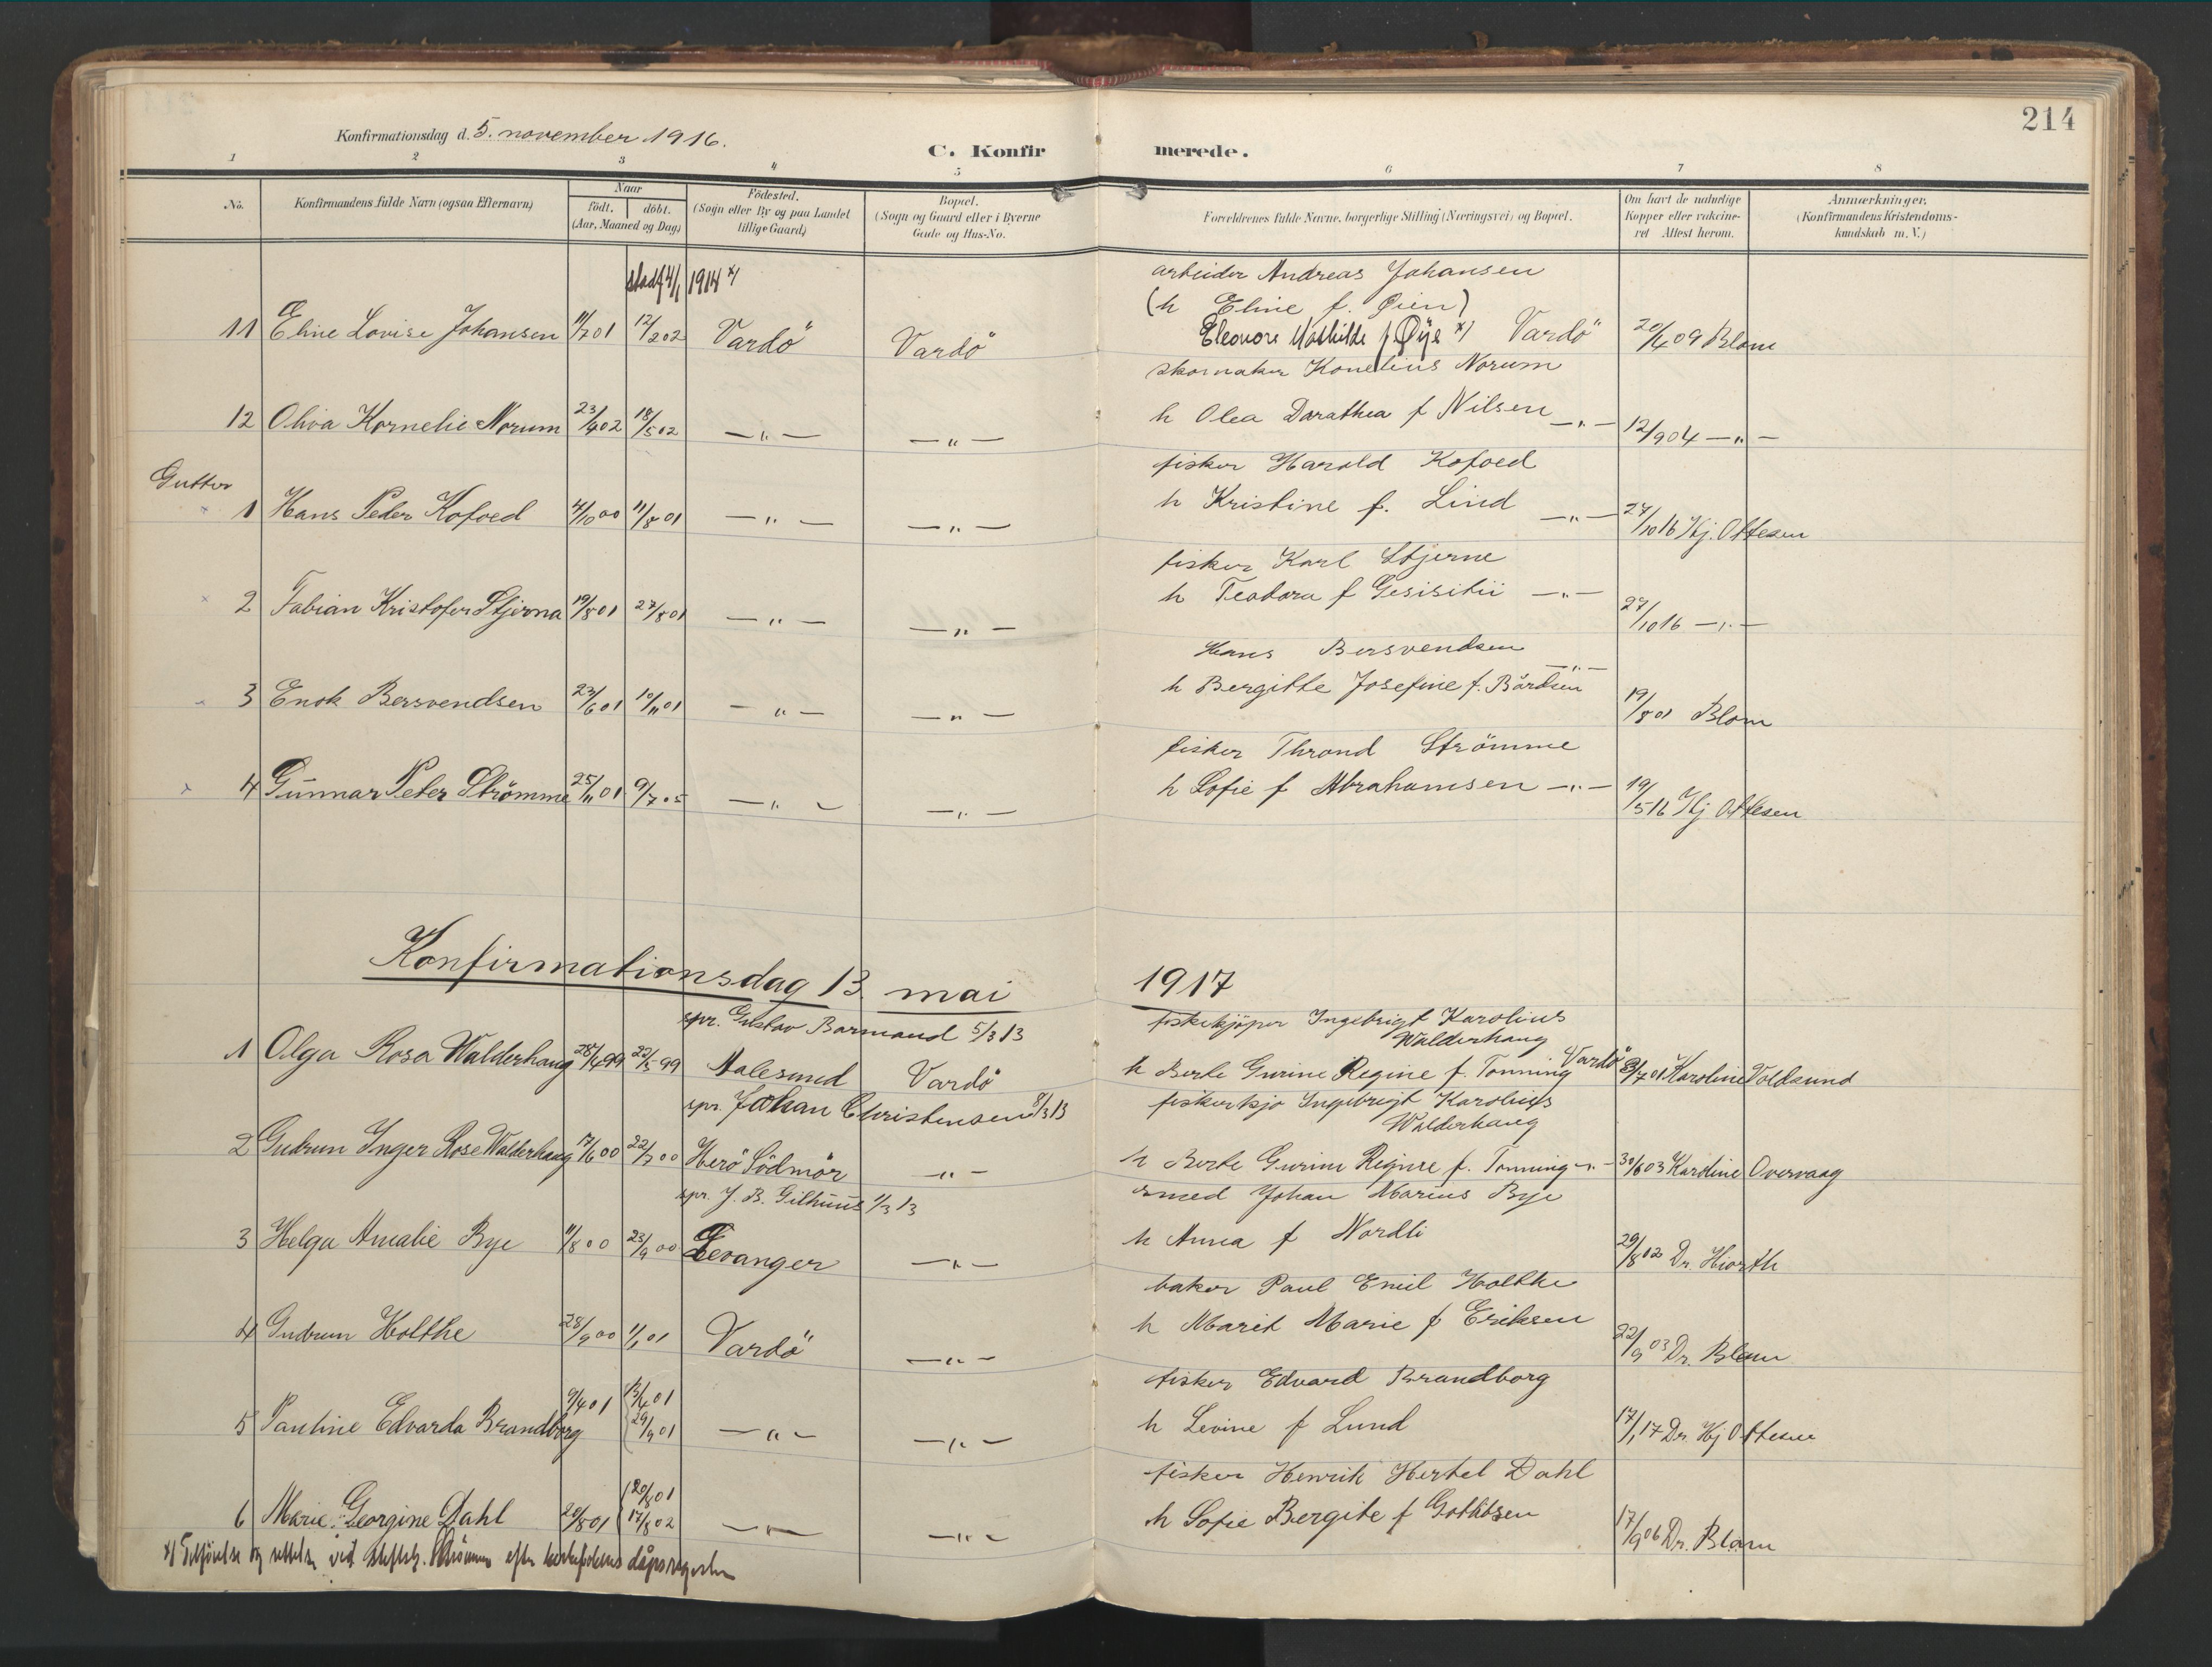 214
Konfirmationsdag d. 5. november 1916.
C. Konfir merede.
1 2 3 4 5 6 7 8
No.
Konfirmandens fulde Navn (ogsaa Efternavn)
Naar
født. døbt.
(Aar, Maaned og Dag)
Födested.
(Sogn eller By og paa Landet
tillige Gaard)
Bopæl.
(Sogn og Gaard eller i Byerne
Gade og Hus-No.
Forældrenes fulde Navne, borgerlige Stilling (Næringsvei) og Bopæl.
Om havt de naturlige
Kopper eller vakcine-
ret Attest herom.
Anmærkninger.
(Konfirmandens Kristendoms-
kundskab m. V.)
stadf 4/1 1914 x)
arbeider Andreas Johansen
(h Eline f. Øien)
11 Eline Lovise Johansen 11/7 01 12/2 02 Vardö Vardö Eleonore Mathilde f Øye x) Vardö 20/4 09 Blom
skomaker Konelius Norum
12 Oliva Kornelie Norum 23/4 02 18/5 02 —"— —"— h Olea Darathea f Nilsen —"— 12/9 04 —"—
Gutter
fisker Harald Kofoed
1 Hans Peder Kofoed 4/10 00 11/8 01 —"— —"— h Kristine f. Lind —"— 27/10 16 Hj. Ottesen
fisker Karl Stjerne
2 Fabian Kristofer Stjerna 19/8 01 27/8 01 —"— —"— h Teodora f Gesisitii —"— 27/10 16 —"—
Hans Bersvendsen
3 Enok Bersvendsen 23/6 01 10/11 01 —"— —"— h Bergitte Josefine f. Bårdsen —"— 19/8 01 Blom
fisker Thrond Strömme
4 Gunnar Peter Strömme 25/11 01 9/7 05 —"— —"— h Sofie f Abrahamsen —"— 19/5 16 Hj Ottesen
Konfirmationsdag 13 mai 1917
spr. Gustav Barmand 5/3 13
fiskekjöper Ingebrigt Karolius
Walderhaug
1 Olga Rosa Walderhaug 28/4 99 22/5 99 Aalesund Vardö h Berte Gurine Regine f. Tonning Vardö 23/7 01 Karoline Voldsund
spr. Johan Christensen 8/3 13
fiskerkjö Ingebrigt Karolius
Walderhaug
2 Gudrun Inger Rose Walderhaug 17/6 00 22/7 00 Herö Södmör —"— h Berte Gurine Regine f. Tonning —"— 30/6 03 Karoline Overvaag
spr. J. B. Gilhuus 1/3 13
smed Johan Marius Bye
3 Helga Amalie Bye 11/8 00 23/9 00 Levanger —"— h Anna f Nordli 29/8 02 Dr. Hiorth
baker Paul Emil Holthe
4 Gudrun Holthe 28/9 00 1/1 01 Vardö —"— h Marit Marie f Eriksen 22/9 03 Dr. Blom
fisker Edvard Brandborg
5 Pauline Edvarda Brandborg 9/4 01 13/4 01 29/9 01 —"— —"— h Levine f Lund 17/1 17 Dr. Hj Ottesen
fisker Henrik Hertel Dahl
6 Marie Georgine Dahl 20/8 01 20/8 01 17/8 02 —"— —"— h Sofie Bergite f Gotlibsen 17/9 06 Dr. Blom
x) Tilföielse og rettelse ved efter kirkebokens dåpsregister